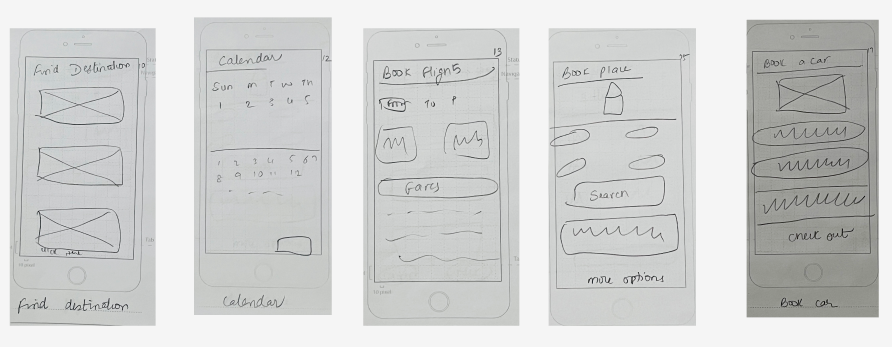 10
Find Destination
Find destination
12
Calendar
Sun m T W Th
1 2 3 4 5
1 2 3 4 5 6 7
8 9 10 11 12
Calendar
13
Book Fligns
To
Fares
15
Book place
Search
more options
Book a car
check out
Book car